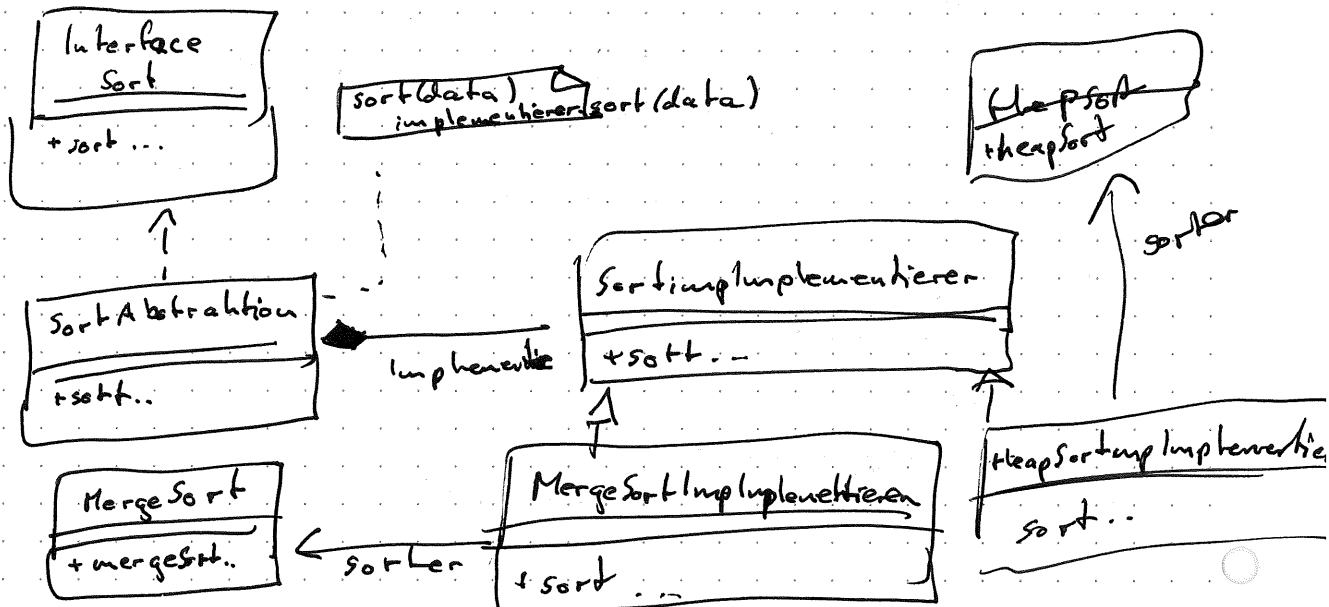 Interface
Sort
+ sort ...
sort(data)
implementierer.sort(data)
HeapSort
+heapSort
sorter
SortAbstraktion
+sort..
SortimpImplementierer
+sort...
MergeSort
+ mergeSort..
sorter
MergeSortImpImplementieren
+ sort ...
HeapSortimpImplementie
sort..